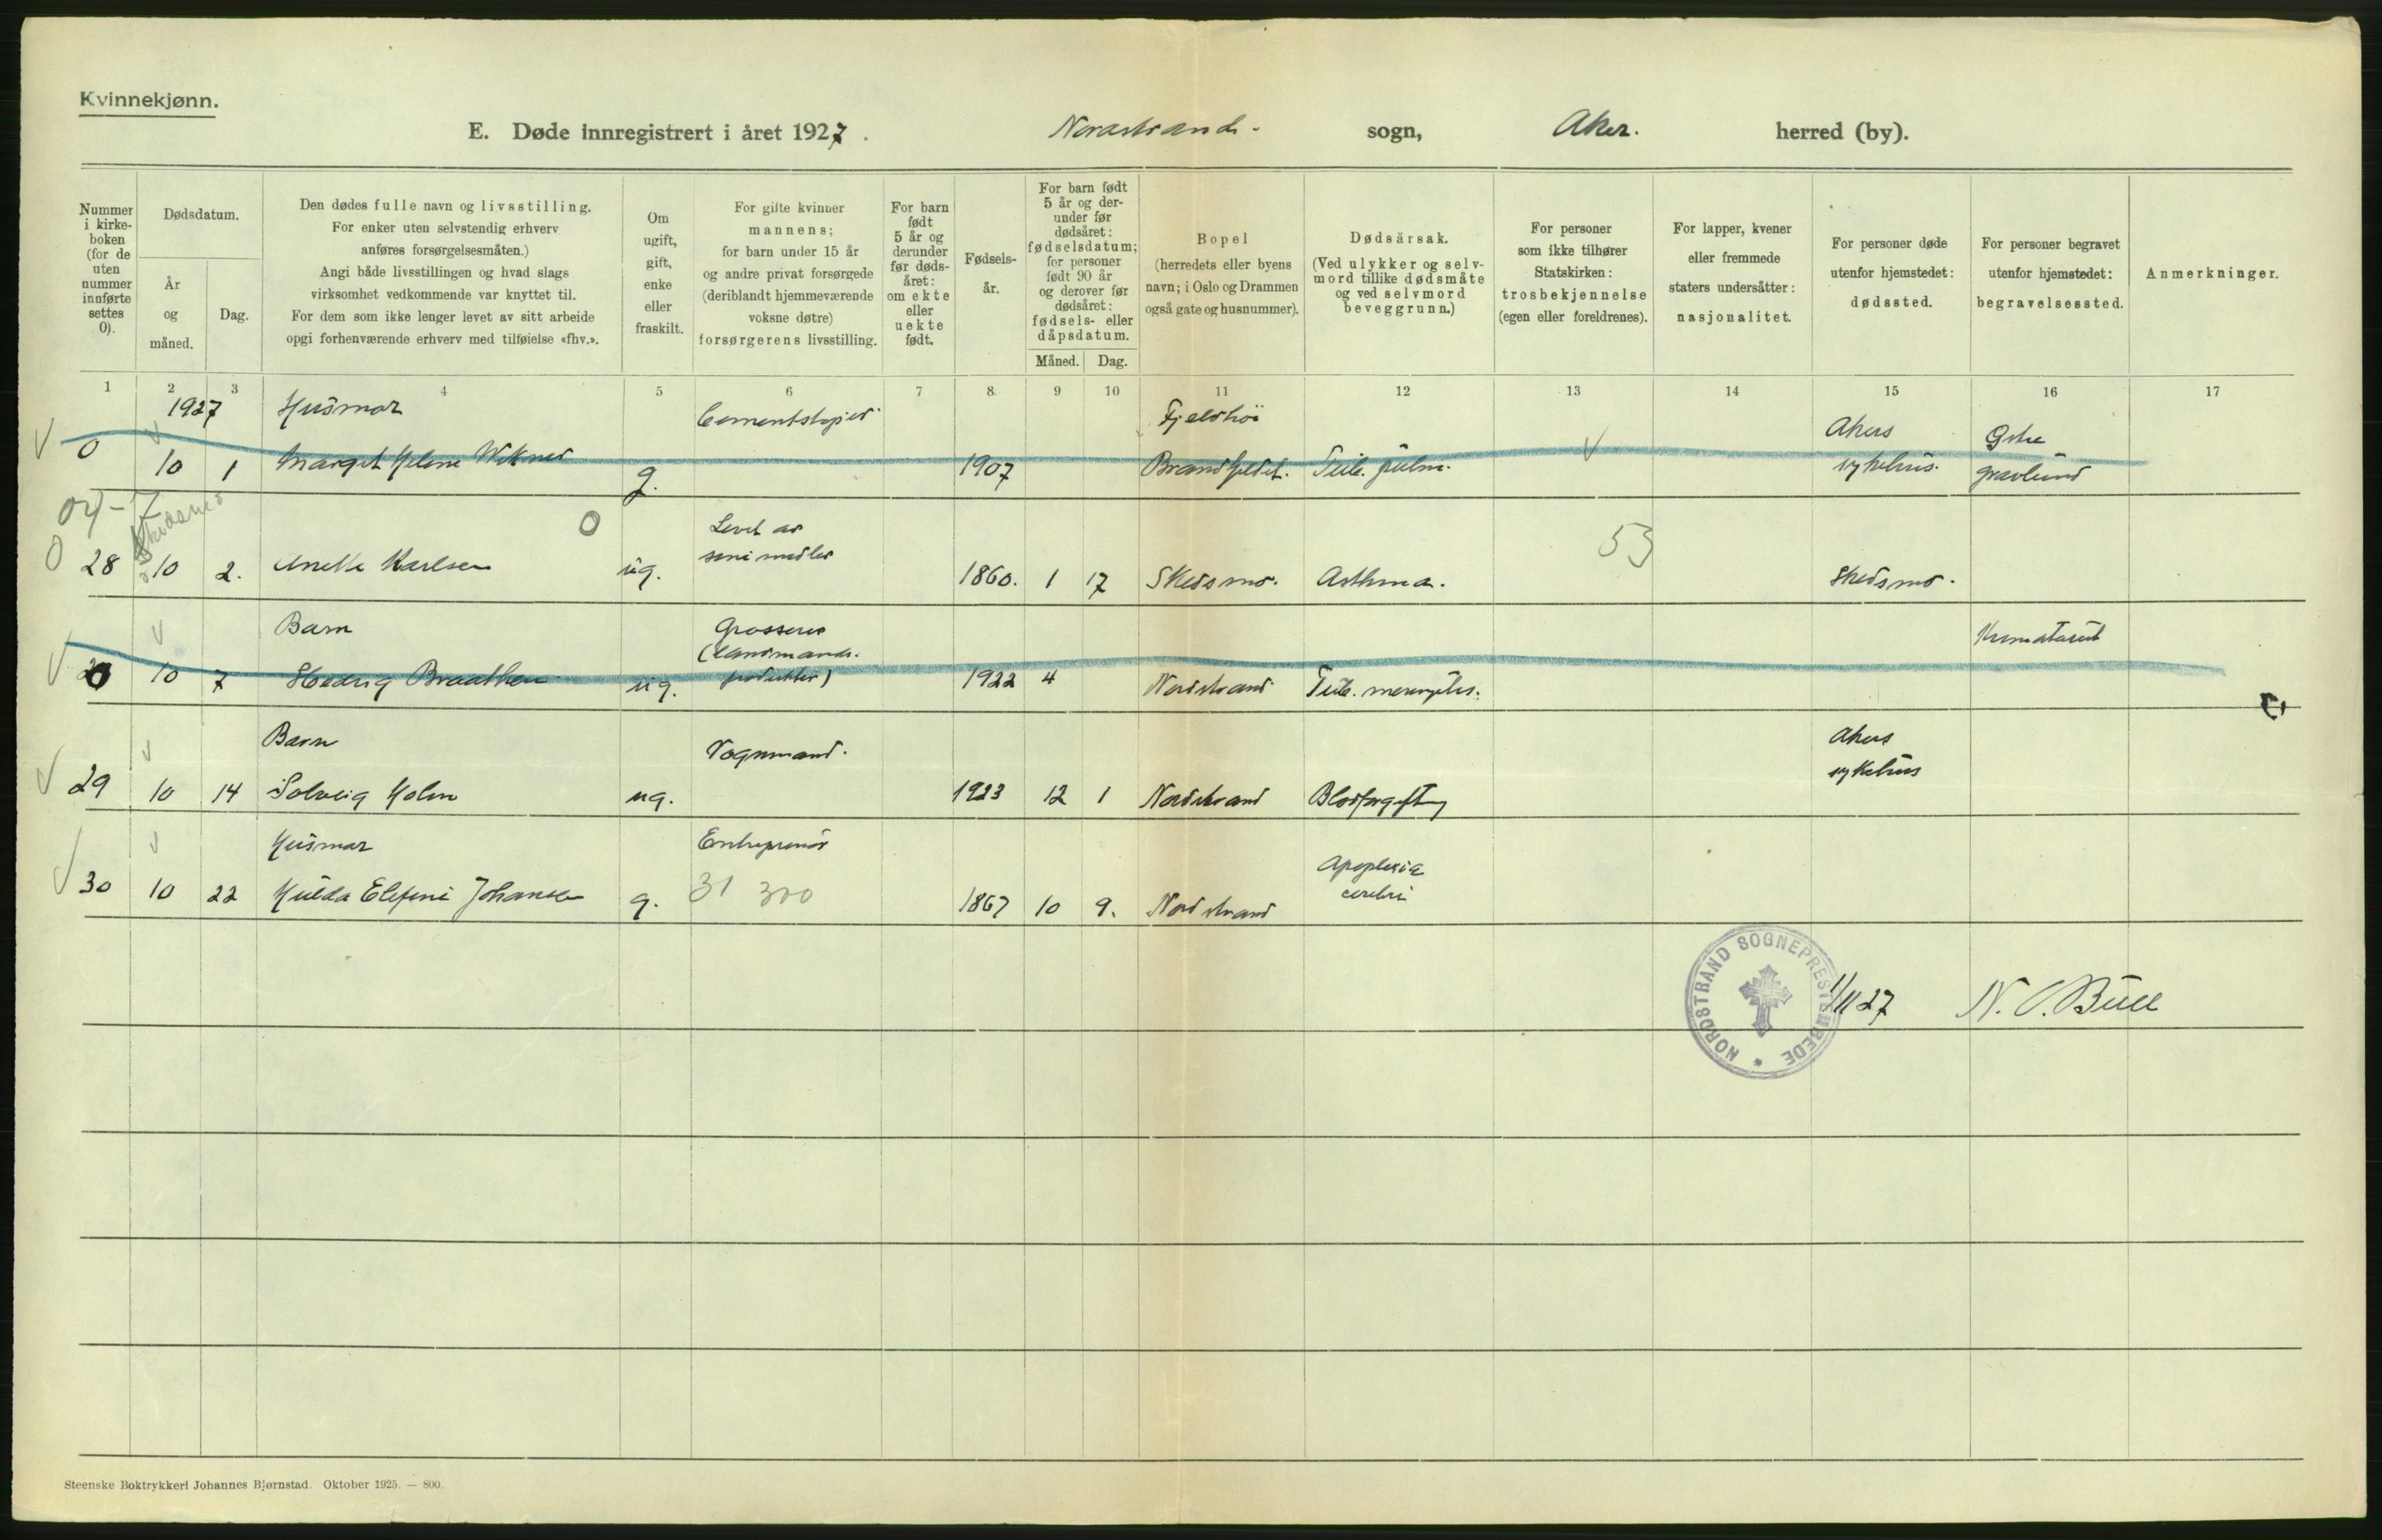 Kvinnekjønn.
E. Døde innregistrert i året 1927. Nordstrand sogn, Aker. herred (by).
Nummer i kirkeboken (for de uten nummer innførte settes 0).
Dødsdatum.
År og måned.
Dag.
Den dødes fulle navn og livsstilling.
For enker uten selvstendig erhverv
anføres forsørgelsesmåten.)
Angi både livsstillingen og hvad slags
virksomhet vedkommende var knyttet til.
For dem som ikke lenger levet av sitt arbeide
opgi forhenværende erhverv med tilføielse «fhv.».
Om ugift, gift, enke eller fraskilt.
For gifte kvinner
mannens;
for barn under 15 år
og andre privat forsørgede
(deriblandt hjemmeværende
voksne døtre)
forsørgerens livsstilling.
For barn født 5 år og derunder før dødsåret: om ekte eller uekte født.
Fødselsår.
For barn født
5 år og derunder før
dødsåret:
fødselsdatum;
for personer
født 90 år
og derover før
dødsåret:
fødsels- eller
dåpsdatum.
Måned. Dag.
Bopel
(herredets eller byens
navn; i Oslo og Drammen
også gate og husnummer).
Dødsårsak.
(Ved ulykker og selvmord tillike dødsmåte
og ved selvmord
beveggrunn.)
For personer
som ikke tilhører
Statskirken:
trosbekjennelse
(egen eller foreldrenes).
For lapper, kvener
eller fremmede
staters undersåtter:
nasjonalitet.
For personer døde
utenfor hjemstedet:
dødssted.
For personer begravet
utenfor hjemstedet:
begravelsessted.
Anmerkninger.
1 2 3 4 5 6 7 8 9 10 11 12 13 14 15 16 17
1927 Husmor Fjeldhöi Akers
0 10 1 Margit Helene g. 1907 Tub. pulm. sykehus. gravlund
Skedsmo
0 Levet av
sine midler 53
0 28 10 2. Anette Karlsen ug. 1860. 1 17 Skedsmo. Asthma. Skedsmo.
Barn Grosserer
(landmands-
produkter)
0 10 7 Hedvig Braathen ug. 1922 4 Nordstrand
Barn Vognmand. Akers
sykehus
29 10 14 Solveig Holm ug. 1923 12 1 Nordstrand Blodforgiftng
Husmor Entreprenör Apoplexia
cerebri
30 10 22 Hulda Johansen g. 31 300 1867 10 9. Nordstrand
NORDSTRAND SOGNEPRESTEMBEDE
1/11 27 N. O. Bull
Steenske Boktrykkeri Johannes Bjørnstad. Oktober 1925. — 800.